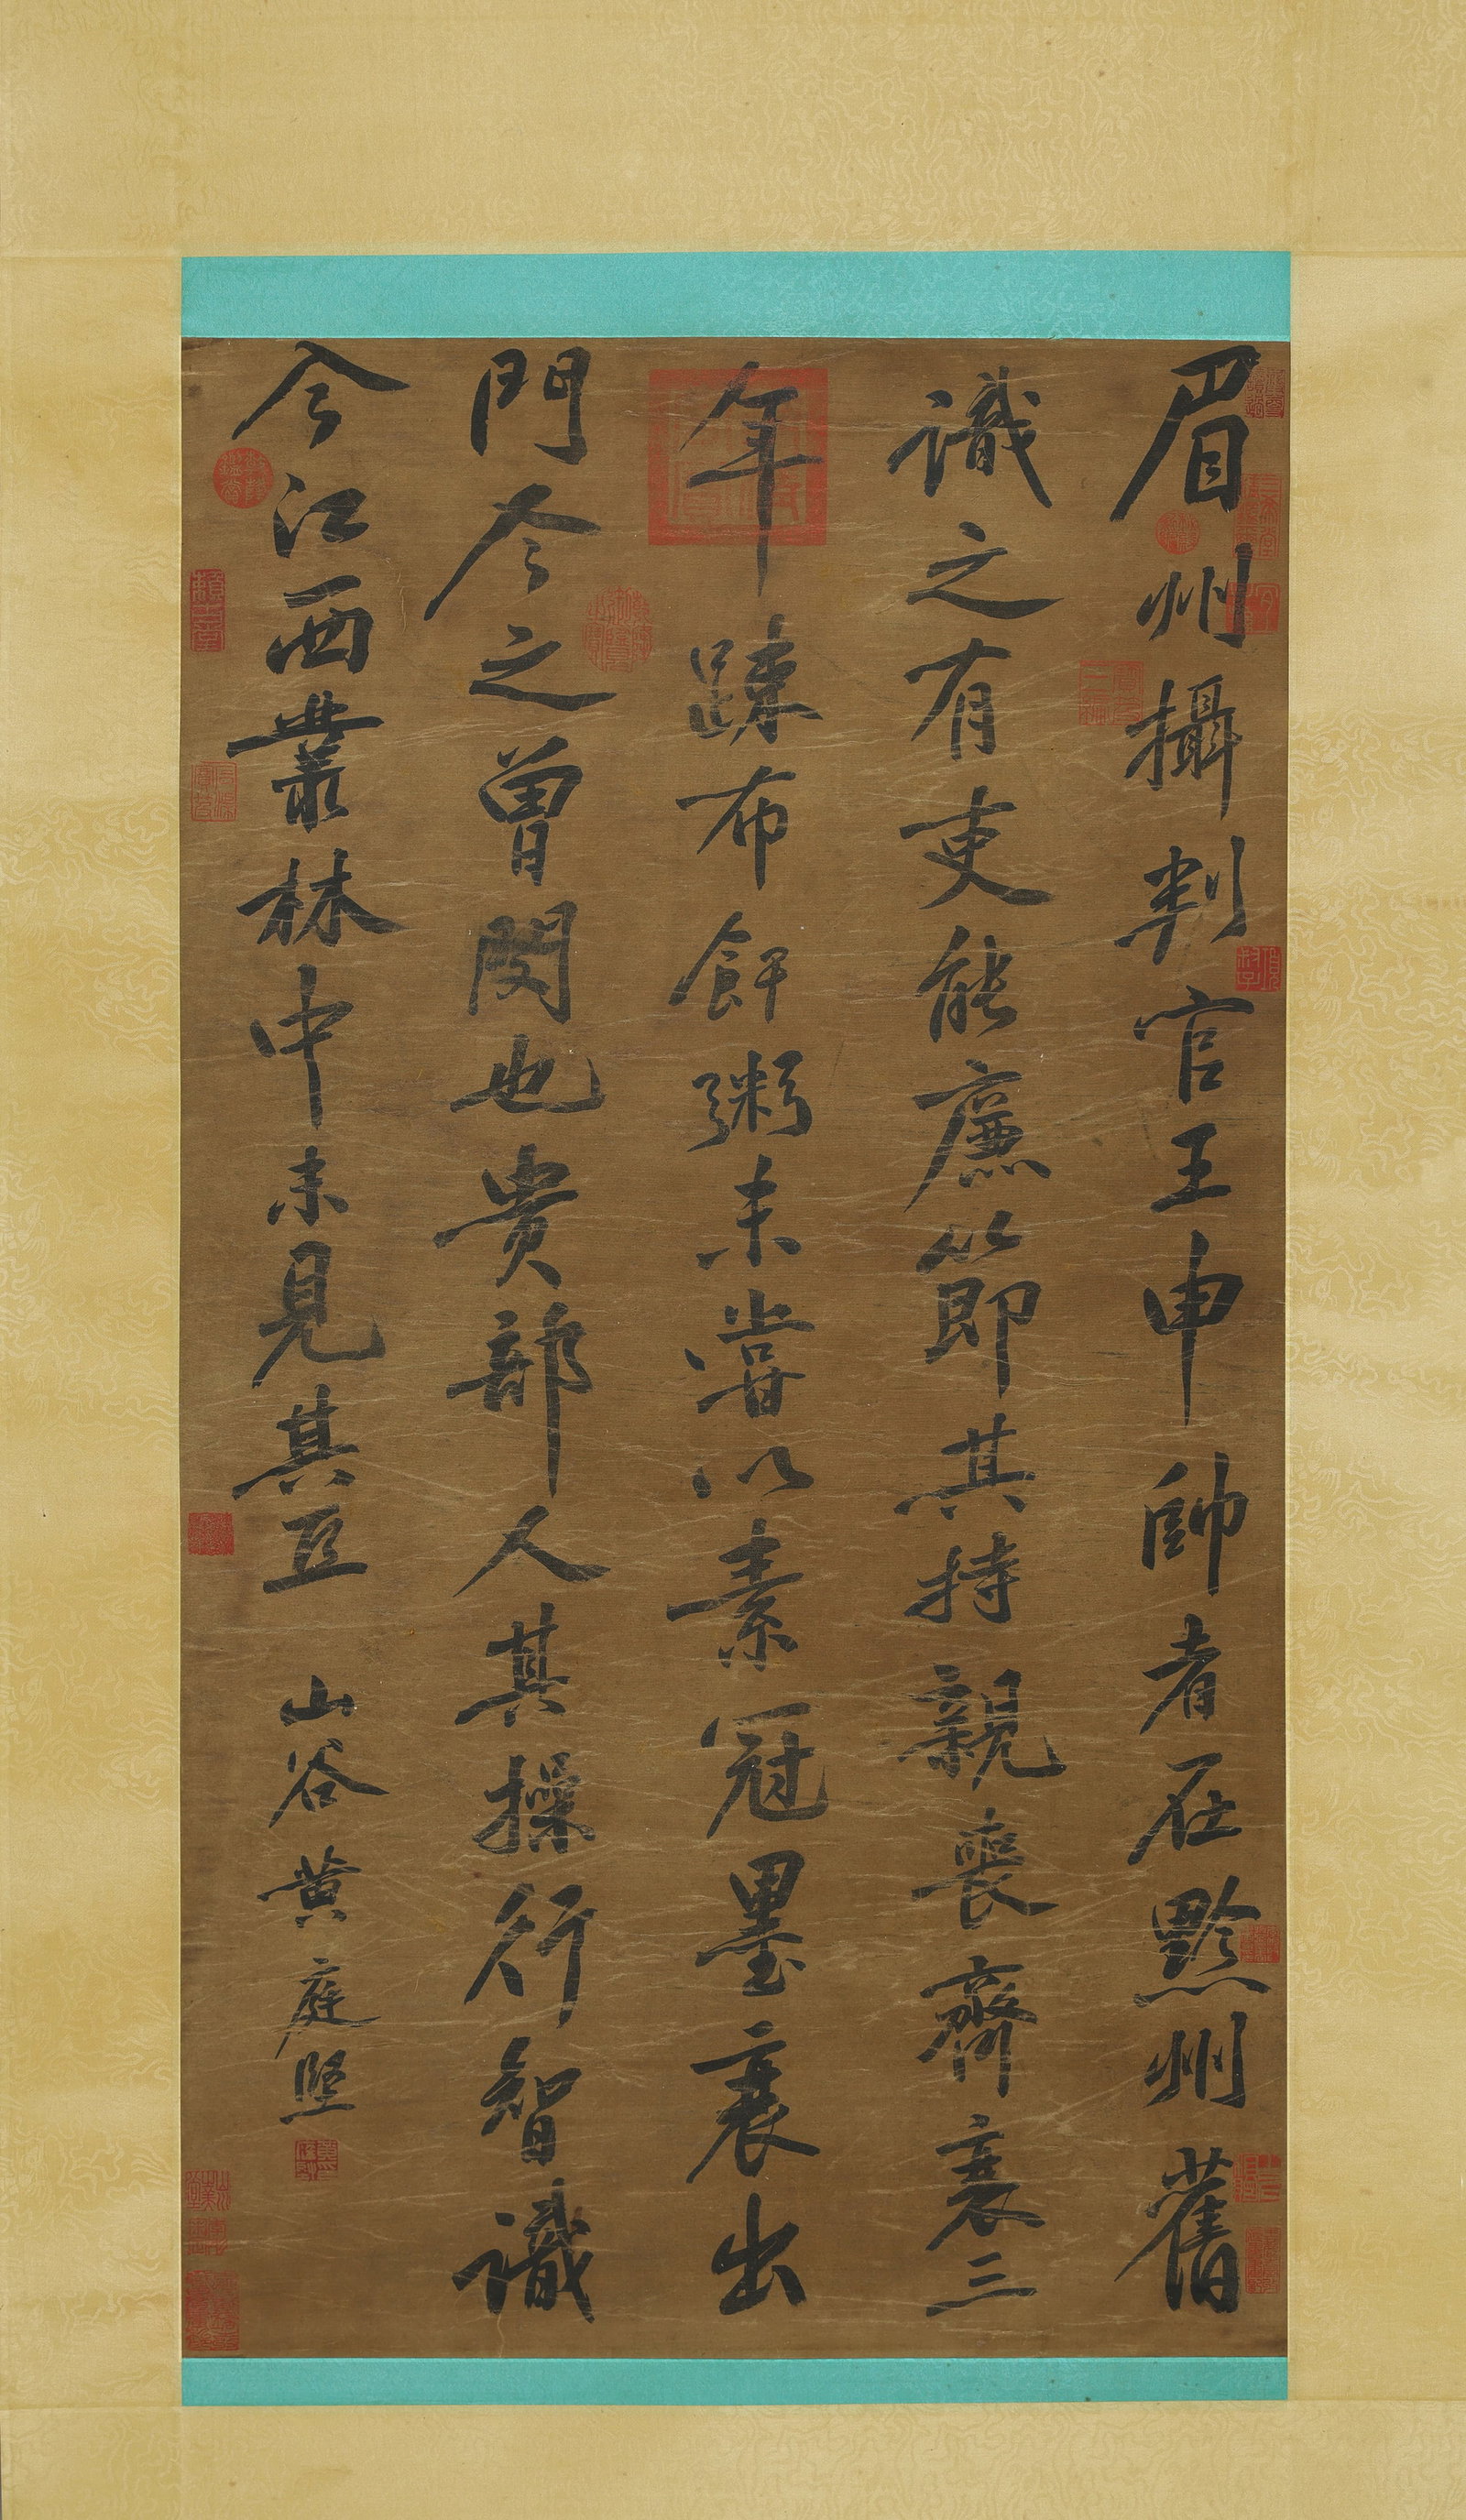 眉州攝判官王申帥者在黔州舊
識之有吏能廉節其持親喪齊衰三
年踈布飦粥未嘗以素冠墨衰出
門今之曾閔也貴部人其操行智識
今江西叢林中未見其亙 山谷黃庭堅